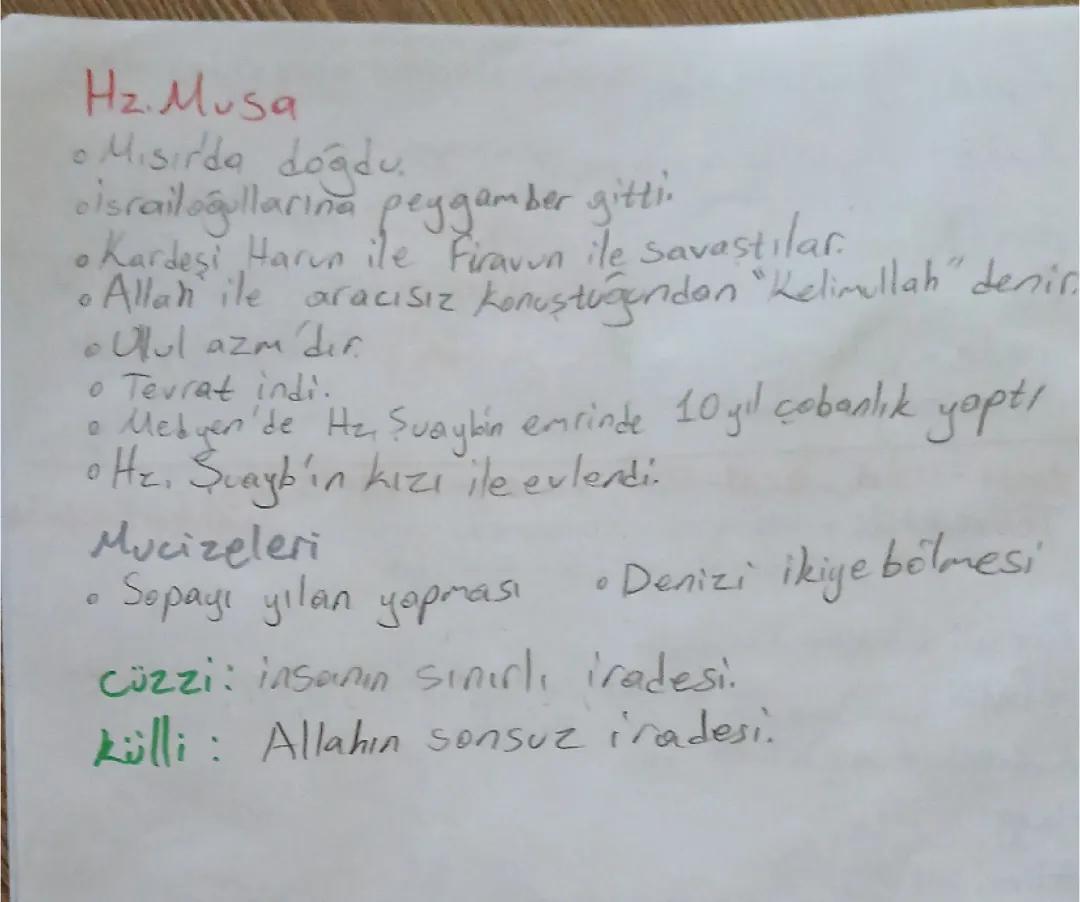 Hz. Musa
• Mısır'da doğdu.
• israiloğullarına peygamber gitti.
• Kardeşi Harun ile Firavun ile savaştılar.
• Allah ile aracısız konuştuğundan "Kelimullah" denir.
• Ulul azm'dır.
• Tevrat indi.
• Medyen'de Hz. Şuaybin emrinde 10 yıl çobanlık yaptı
• Hz. Şuayb'ın kızı ile evlendi.
Mucizeleri
• Sopayı yılan yapması • Denizi ikiye bölmesi
cüzzi: insanın sınırlı iradesi.
külli: Allahın sonsuz iradesi.